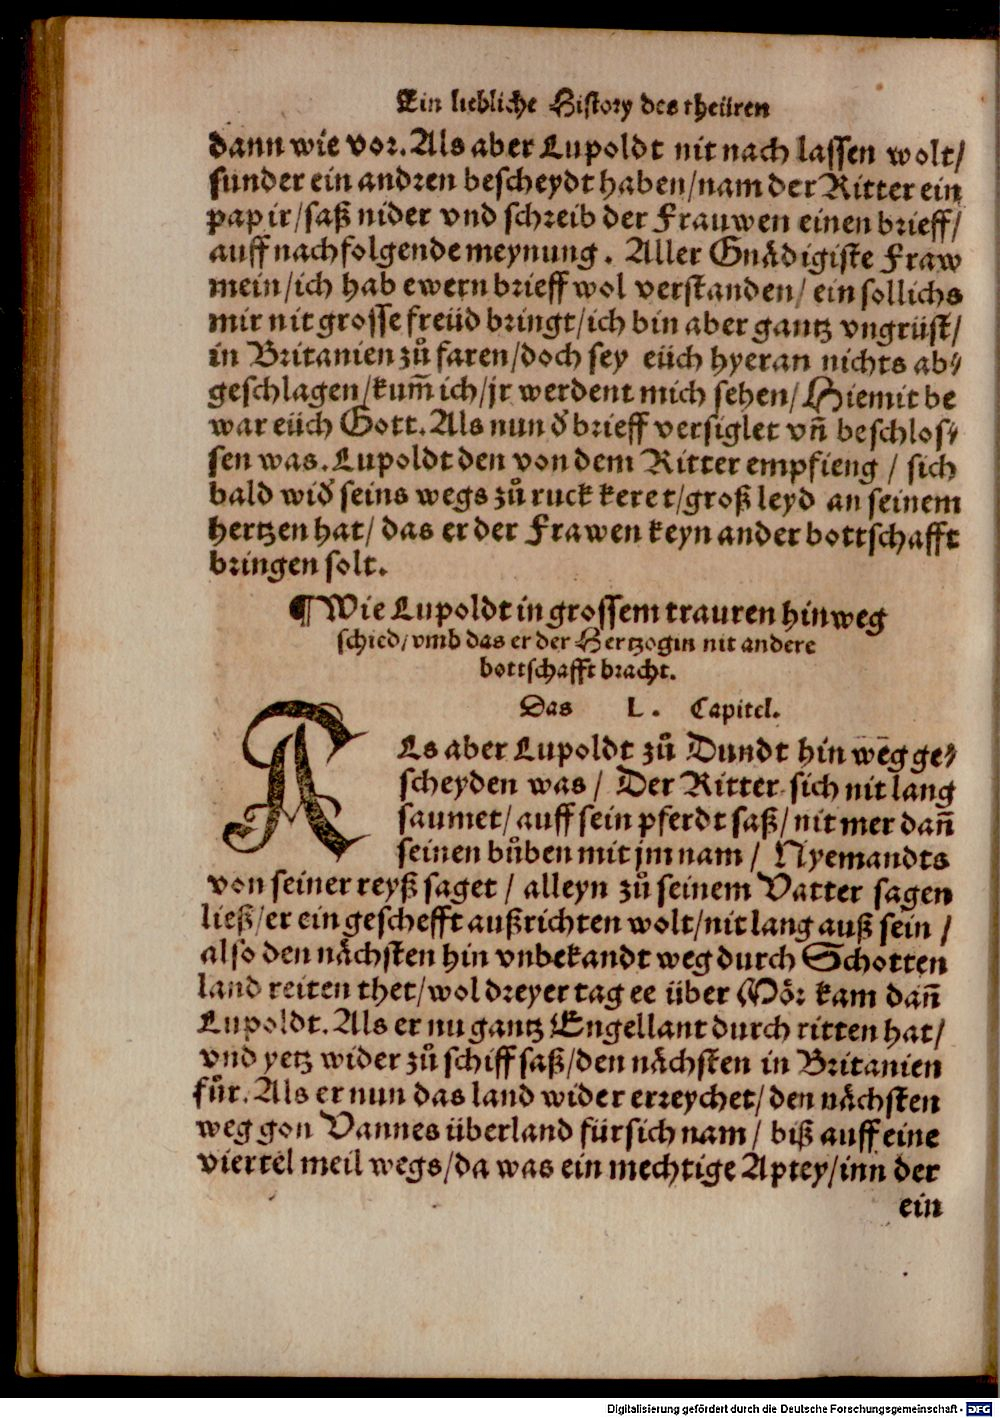 Ein liebliche History des theüren
dann wie vor. Als aber Lupoldt nit nach lassen wolt/
sunder ein andren bescheydt haben/nam der Ritter ein
papir/saß nider vnd schreib der Frauwen einen brieff/
auff nachfolgende meynung. Aller Gnädigiste Fraw
mein/ich hab ewern brieff wol verstanden/ ein sollichs
mir nit grosse freüd bringt/ich bin aber gantz vngrüst/
in Britanien zů faren/doch sey eüch hyeran nichts ab⸗
geschlagen/kum̃ ich/jr werdent mich sehen/Hiemit be
war eüch Gott. Als nun d̕ brieff versiglet vñ beschlos⸗
sen was. Lupoldt den von dem Ritter empfieng / sich
bald wid̕ seins wegs zů ruck keret/groß leyd an seinem
hertzen hat/ das er der Frawen keyn ander bottschafft
bringen solt.
¶Wie Lupoldt in grossem trauren hinweg
schied/vmb das er der Hertzogin nit andere
bottschafft bracht.
Das L. Capitel.
ALs aber Lupoldt zů Dundt hin weg ge⸗
scheyden was/ Der Ritter sich nit lang
saumet/auff sein pferdt saß/nit mer dañ
seinen bůben mit jm nam/ Nyemandts
von seiner reyß saget / alleyn zů seinem Vatter sagen
ließ/er ein geschefft außrichten wolt/nit lang auß sein /
also den nächsten hin vnbekandt weg durch Schotten
land reiten thet/wol dreyer tag ee über Mör kam dañ
Lupoldt. Als er nu gantz Engellant durch ritten hat/
vnd yetz wider zů schiff saß/den nächsten in Britanien
fůr. Als er nun das land wider erreychet/den nächsten
weg gon Vannes überland für sich nam/ biß auff eine
viertel meil wegs/da was ein mechtige Aptey/inn der
ein
Digitalisierung gefördert durch die Deutsche Forschungsgemeinschaft - DFG